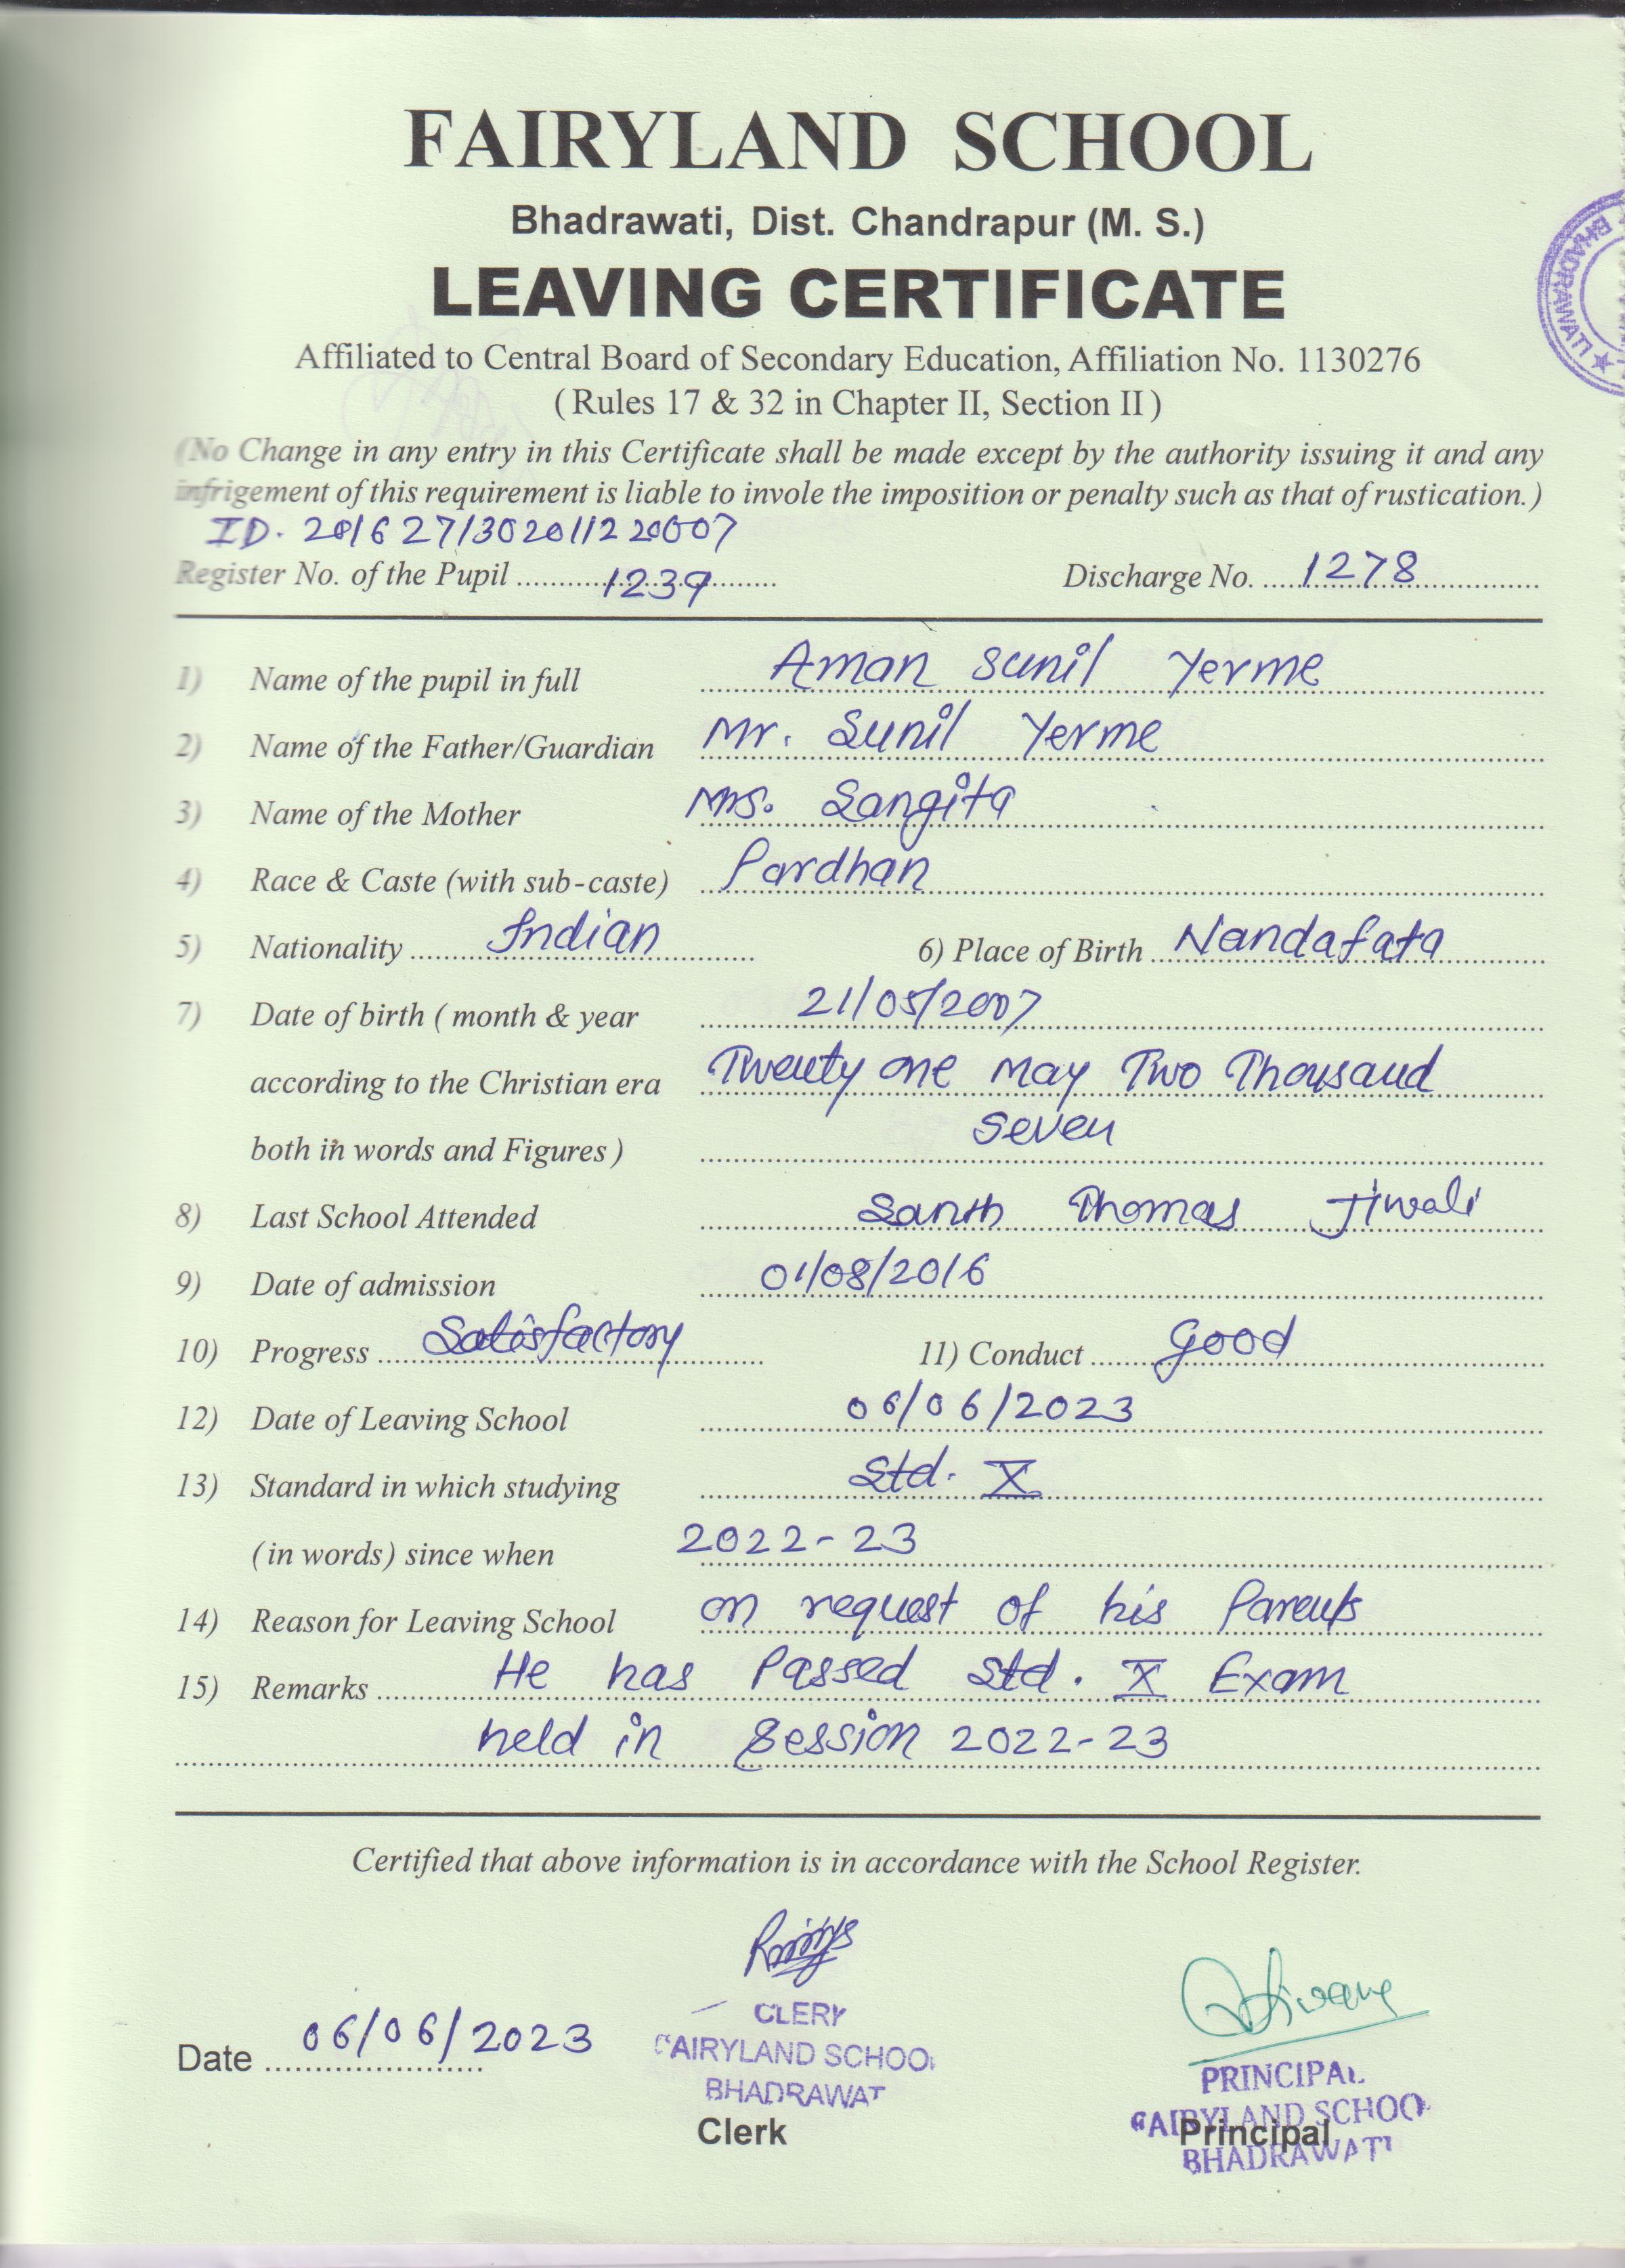 FAIRYLAND SCHOOL
Bhadrawati, Dist. Chandrapur (M. S.)
LEAVING CERTIFICATE
BHADRAWATI ★
Affiliated to Central Board of Secondary Education, Affiliation No. 1130276
( Rules 17 & 32 in Chapter II, Section II )
(No Change in any entry in this Certificate shall be made except by the authority issuing it and any
infrigement of this requirement is liable to invole the imposition or penalty such as that of rustication.)
ID. 2016 27/3020112 20007
Register No. of the Pupil 1239 Discharge No. 1278
1) Name of the pupil in full Aman Sunil Yerme
2) Name of the Father/Guardian Mr. Sunil Yerme
3) Name of the Mother Mrs. Sangita
4) Race & Caste (with sub-caste) Pardhan
5) Nationality Indian 6) Place of Birth Nandafata
7) Date of birth ( month & year 21/05/2007
according to the Christian era Twenty one May Two Thousand
both in words and Figures ) Seven
8) Last School Attended Thomas Jiwali
9) Date of admission 01/08/2016
10) Progress Satisfactory 11) Conduct Good
12) Date of Leaving School 06/06/2023
13) Standard in which studying Std. X
(in words) since when 2022-23
14) Reason for Leaving School on request of his Parents
15) Remarks He has Passed Std. X Exam
held in Session 2022-23
Certified that above information is in accordance with the School Register.
CLERK
FAIRYLAND SCHOOL
BHADRAWAT
Date 06/06/2023
Clerk
PRINCIPAL
FAIRYLAND SCHOOL
Principal
BHADRAWATI